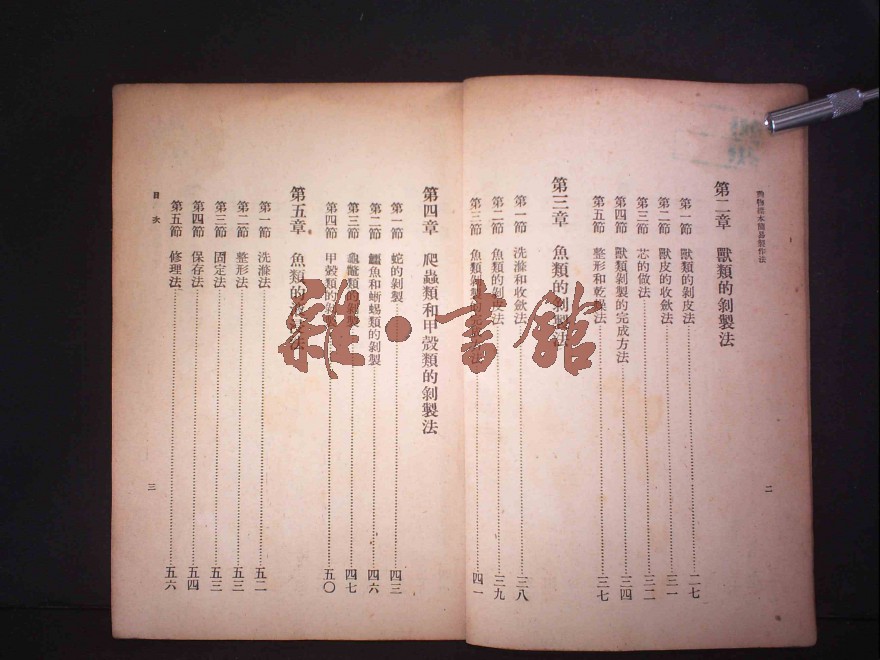 動物標本簡易製作法
第二章 獸類的剝製法
第一節 獸類的剝皮法 二七
第二節 獸皮的收斂法 三一
第三節 芯的做法 三二
第四節 獸類剝製的完成方法 三四
第五節 整形和乾燥法 三七
二
第三章 魚類的剝製法
第一節 洗滌和收斂法 三八
第二節 魚類的剝皮法 三九
第三節 魚類剝製 法 四一
第四章 爬蟲類和甲殼類的剝製法
第一節 蛇的剝製 四三
第二節 鱷魚和蜥蜴類的剝製 四六
第三節 龜鼈類的剝製 四七
第四節 甲殼類的剝製 五〇
第五章 魚類的 法
第一節 洗滌法 五二
第二節 整形法 五三
第三節 固定法 五三
第四節 保存法 五四
第五節 修理法 五六
目次
三
雜·書館